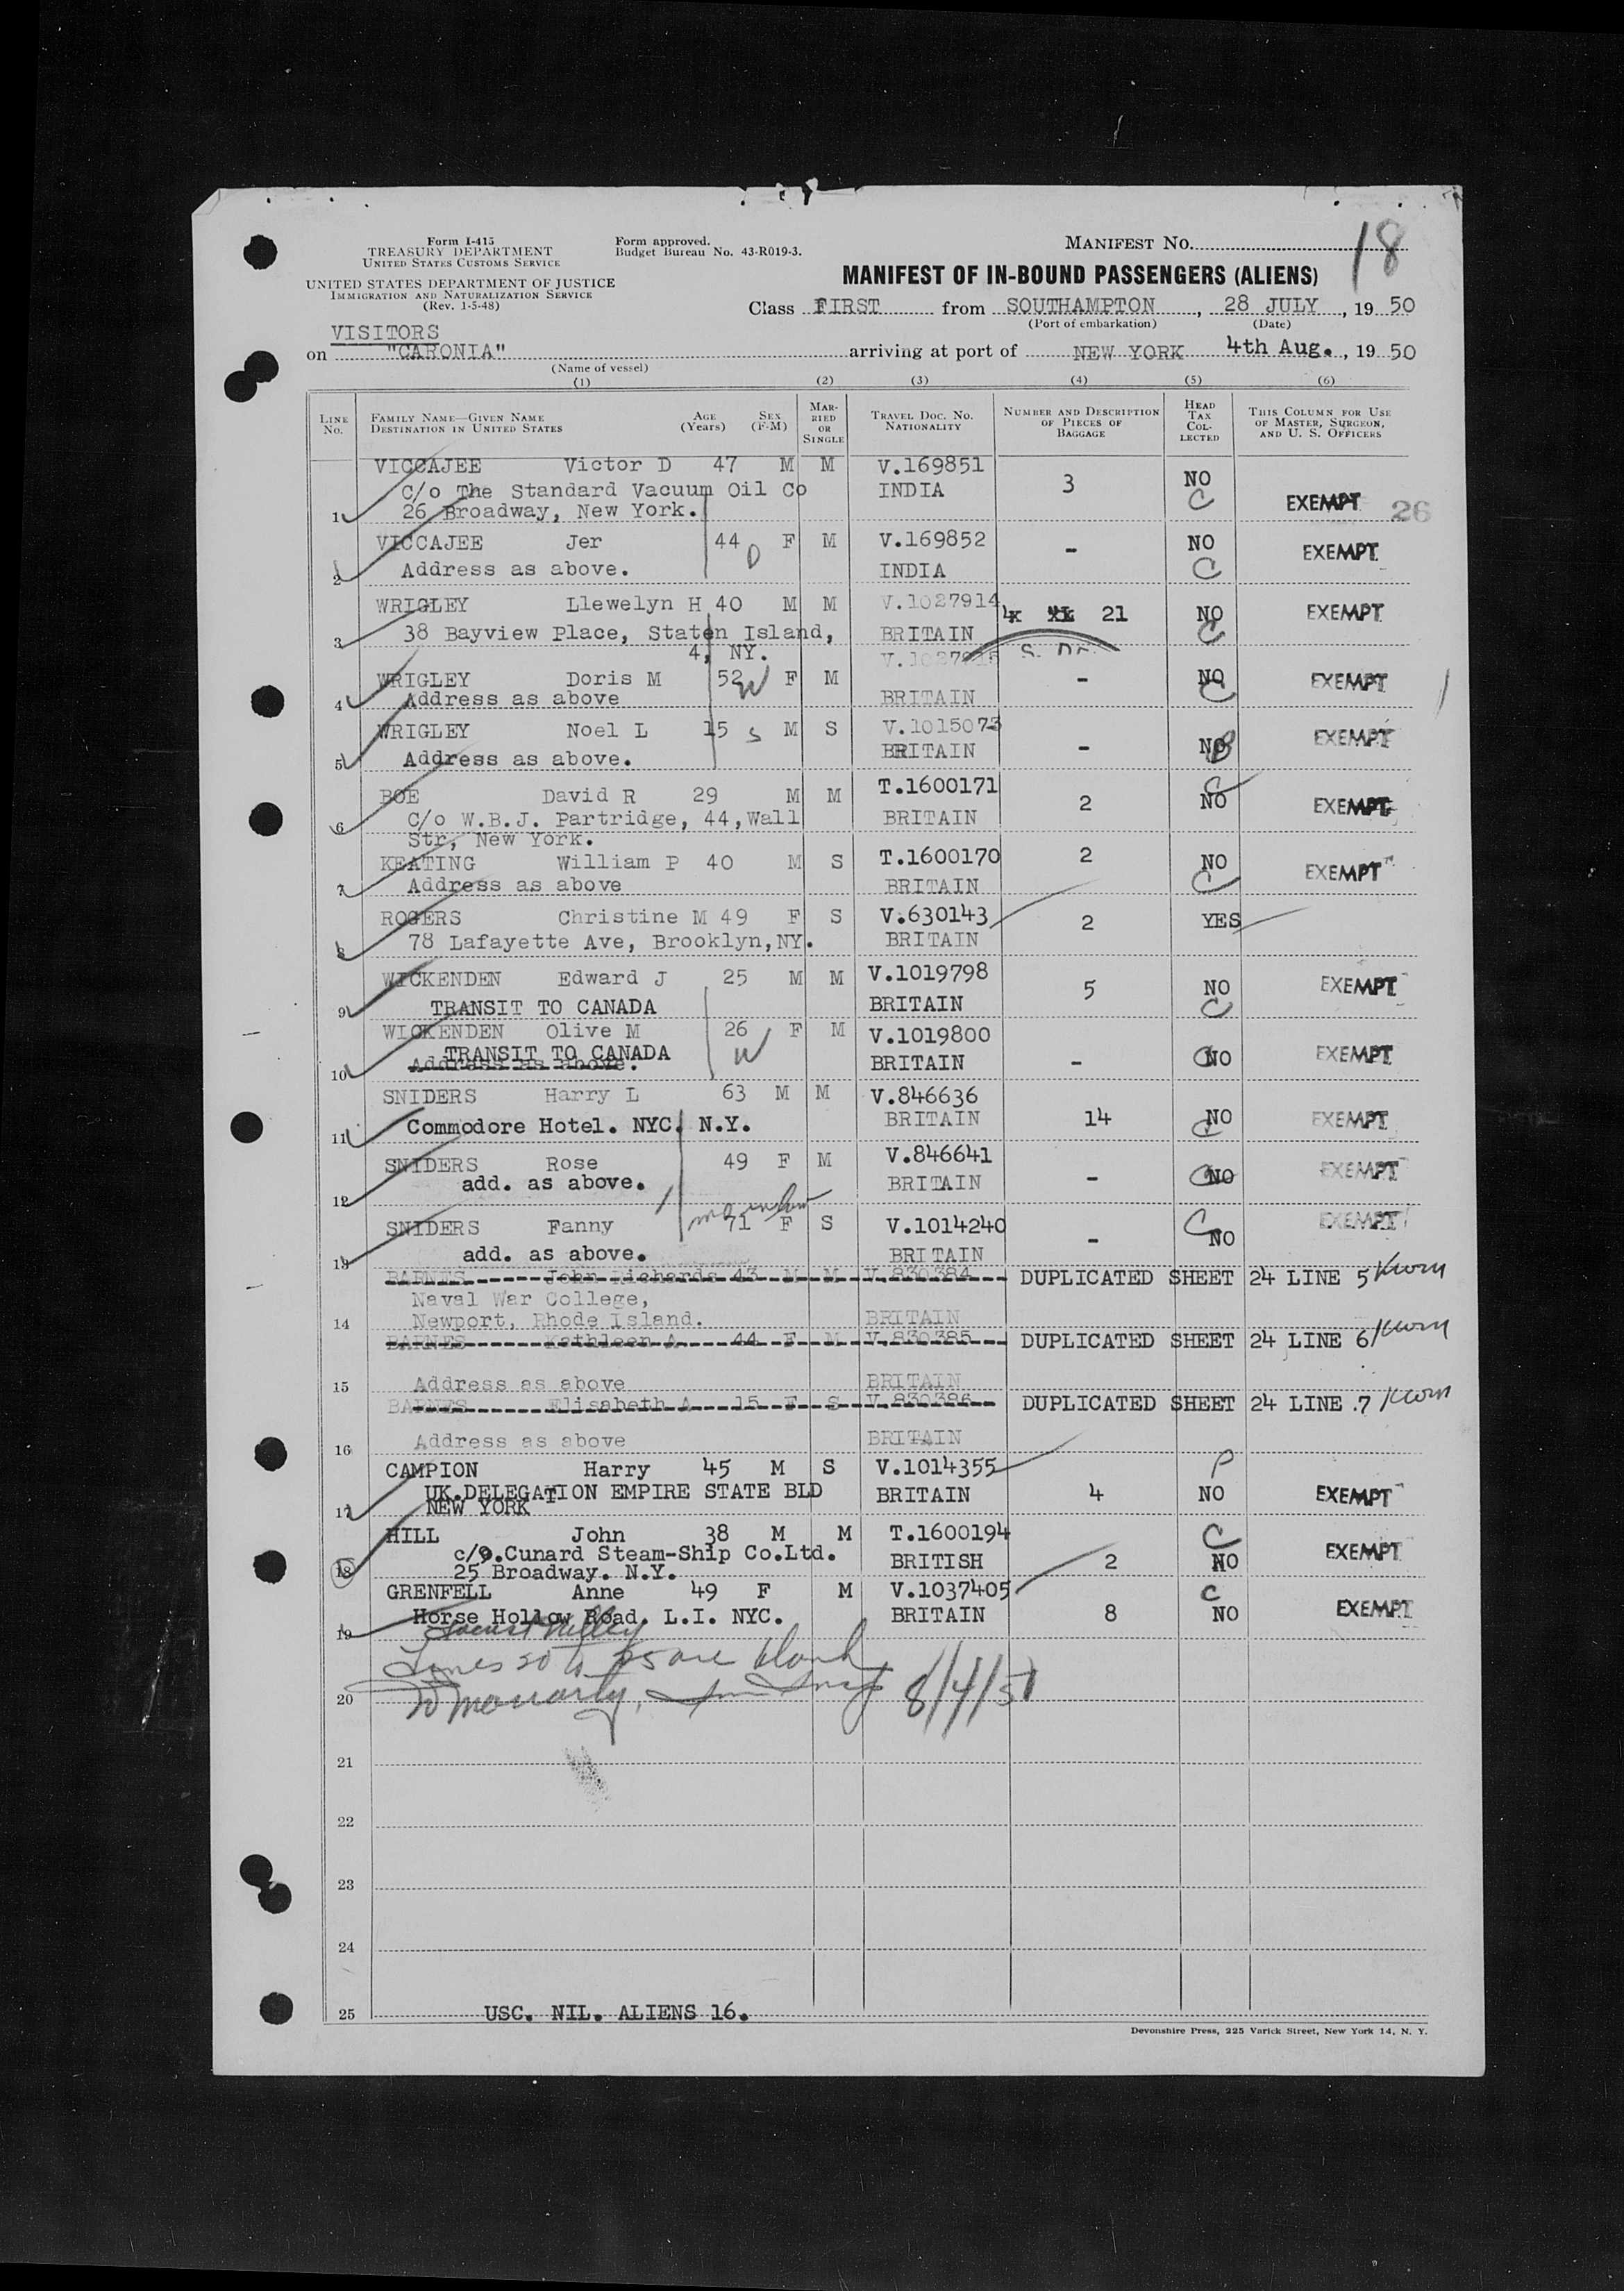 18
Form I-415
TREASURY DEPARTMENT
UNITED STATES CUSTOMS SERVICE
UNITED STATES DEPARTMENT OF JUSTICE
IMMIGRATION AND NATURALIZATION SERVICE
(Rev. 1-5-48)
Form approved.
Budget Bureau No. 43-R019-3.
MANIFEST NO.
MANIFEST OF IN-BOUND PASSENGERS (ALIENS)
Class FIRST from SOUTHAMPTON, 28 JULY, 1950
(Port of embarkation) (Date)
VISITORS
on "CARONIA" arriving at port of NEW YORK 4th Aug., 1950
(Name of vessel)
(1) (2) (3) (4) (5) (6)
LINE NO. FAMILY NAME—GIVEN NAME DESTINATION IN UNITED STATES AGE (Years) SEX (F-M) MARRIED OR SINGLE TRAVEL DOC. NO. NATIONALITY NUMBER AND DESCRIPTION OF PIECES OF BAGGAGE HEAD TAX COLLECTED THIS COLUMN FOR USE OF MASTER, SURGEON, AND U. S. OFFICERS
VICCAJEE Victor D 47 M M V.169851
C/o The Standard Vacuum Oil Co INDIA 3 NO C
1 26 Broadway, New York. EXEMPT 26
VICCAJEE Jer 44 F M V.169852 - NO EXEMPT
2 Address as above. INDIA C
WRIGLEY Llewelyn H 40 M M V.1027914 21 NO EXEMPT
3 38 Bayview Place, Staten Island, BRITAIN C
4, NY.
WRIGLEY Doris M 52 W F M - NO EXEMPT
4 Address as above BRITAIN C
WRIGLEY Noel L 15 S M S V.1015073 EXEMPT
5 Address as above. BRITAIN - NO
BOE David R 29 M M T.1600171 2 C NO EXEMPT
6 C/o W.B.J. Partridge, 44, Wall BRITAIN
Str, New York.
KEATING William P 40 M S T.1600170 2 NO EXEMPT
7 Address as above BRITAIN C
ROGERS Christine M 49 F S V.630143 2 YES
8 78 Lafayette Ave, Brooklyn, NY. BRITAIN
WICKENDEN Edward J 25 M M V.1019798 5 NO EXEMPT
9 TRANSIT TO CANADA BRITAIN C
WICKENDEN Olive M 26 W F M V.1019800
TRANSIT TO CANADA
10 Address as above. BRITAIN - C NO EXEMPT
SNIDERS Harry L 63 M M V.846636
11 Commodore Hotel. NYC. N.Y. BRITAIN 14 C NO EXEMPT
SNIDERS Rose 49 F M V.846641
12 add. as above. BRITAIN - C NO EXEMPT
SNIDERS Fanny 71 F S V.1014240 C EXEMPT
13 add. as above. BRITAIN - NO
BARNES John Richards 43 M M V.830384 DUPLICATED SHEET 24 LINE 5
Naval War College,
14 Newport, Rhode Island. BRITAIN
BARNES Kathleen A 44 F M V.830385 DUPLICATED SHEET 24 LINE 6
15 Address as above BRITAIN
BARNES Elisabeth A 15 F S V.830386 DUPLICATED SHEET 24 LINE 7
16 Address as above BRITAIN
CAMPION Harry 45 M S V.1014355 P
UK.DELEGATION EMPIRE STATE BLD BRITAIN 4 NO EXEMPT
17 NEW YORK
HILL John 38 M M T.1600194 C
c/o.Cunard Steam-Ship Co.Ltd. BRITISH 2 NO EXEMPT
18 25 Broadway. N.Y.
GRENFELL Anne 49 F M V.1037405 C
Horse Hollow Road. L.I. NYC. BRITAIN 8 NO EXEMPT
19 Locust Valley
Lines 20 to 25 are blank
20
21
22
23
24
25 USC. NIL. ALIENS 16.
Devonshire Press, 225 Varick Street, New York 14, N. Y.